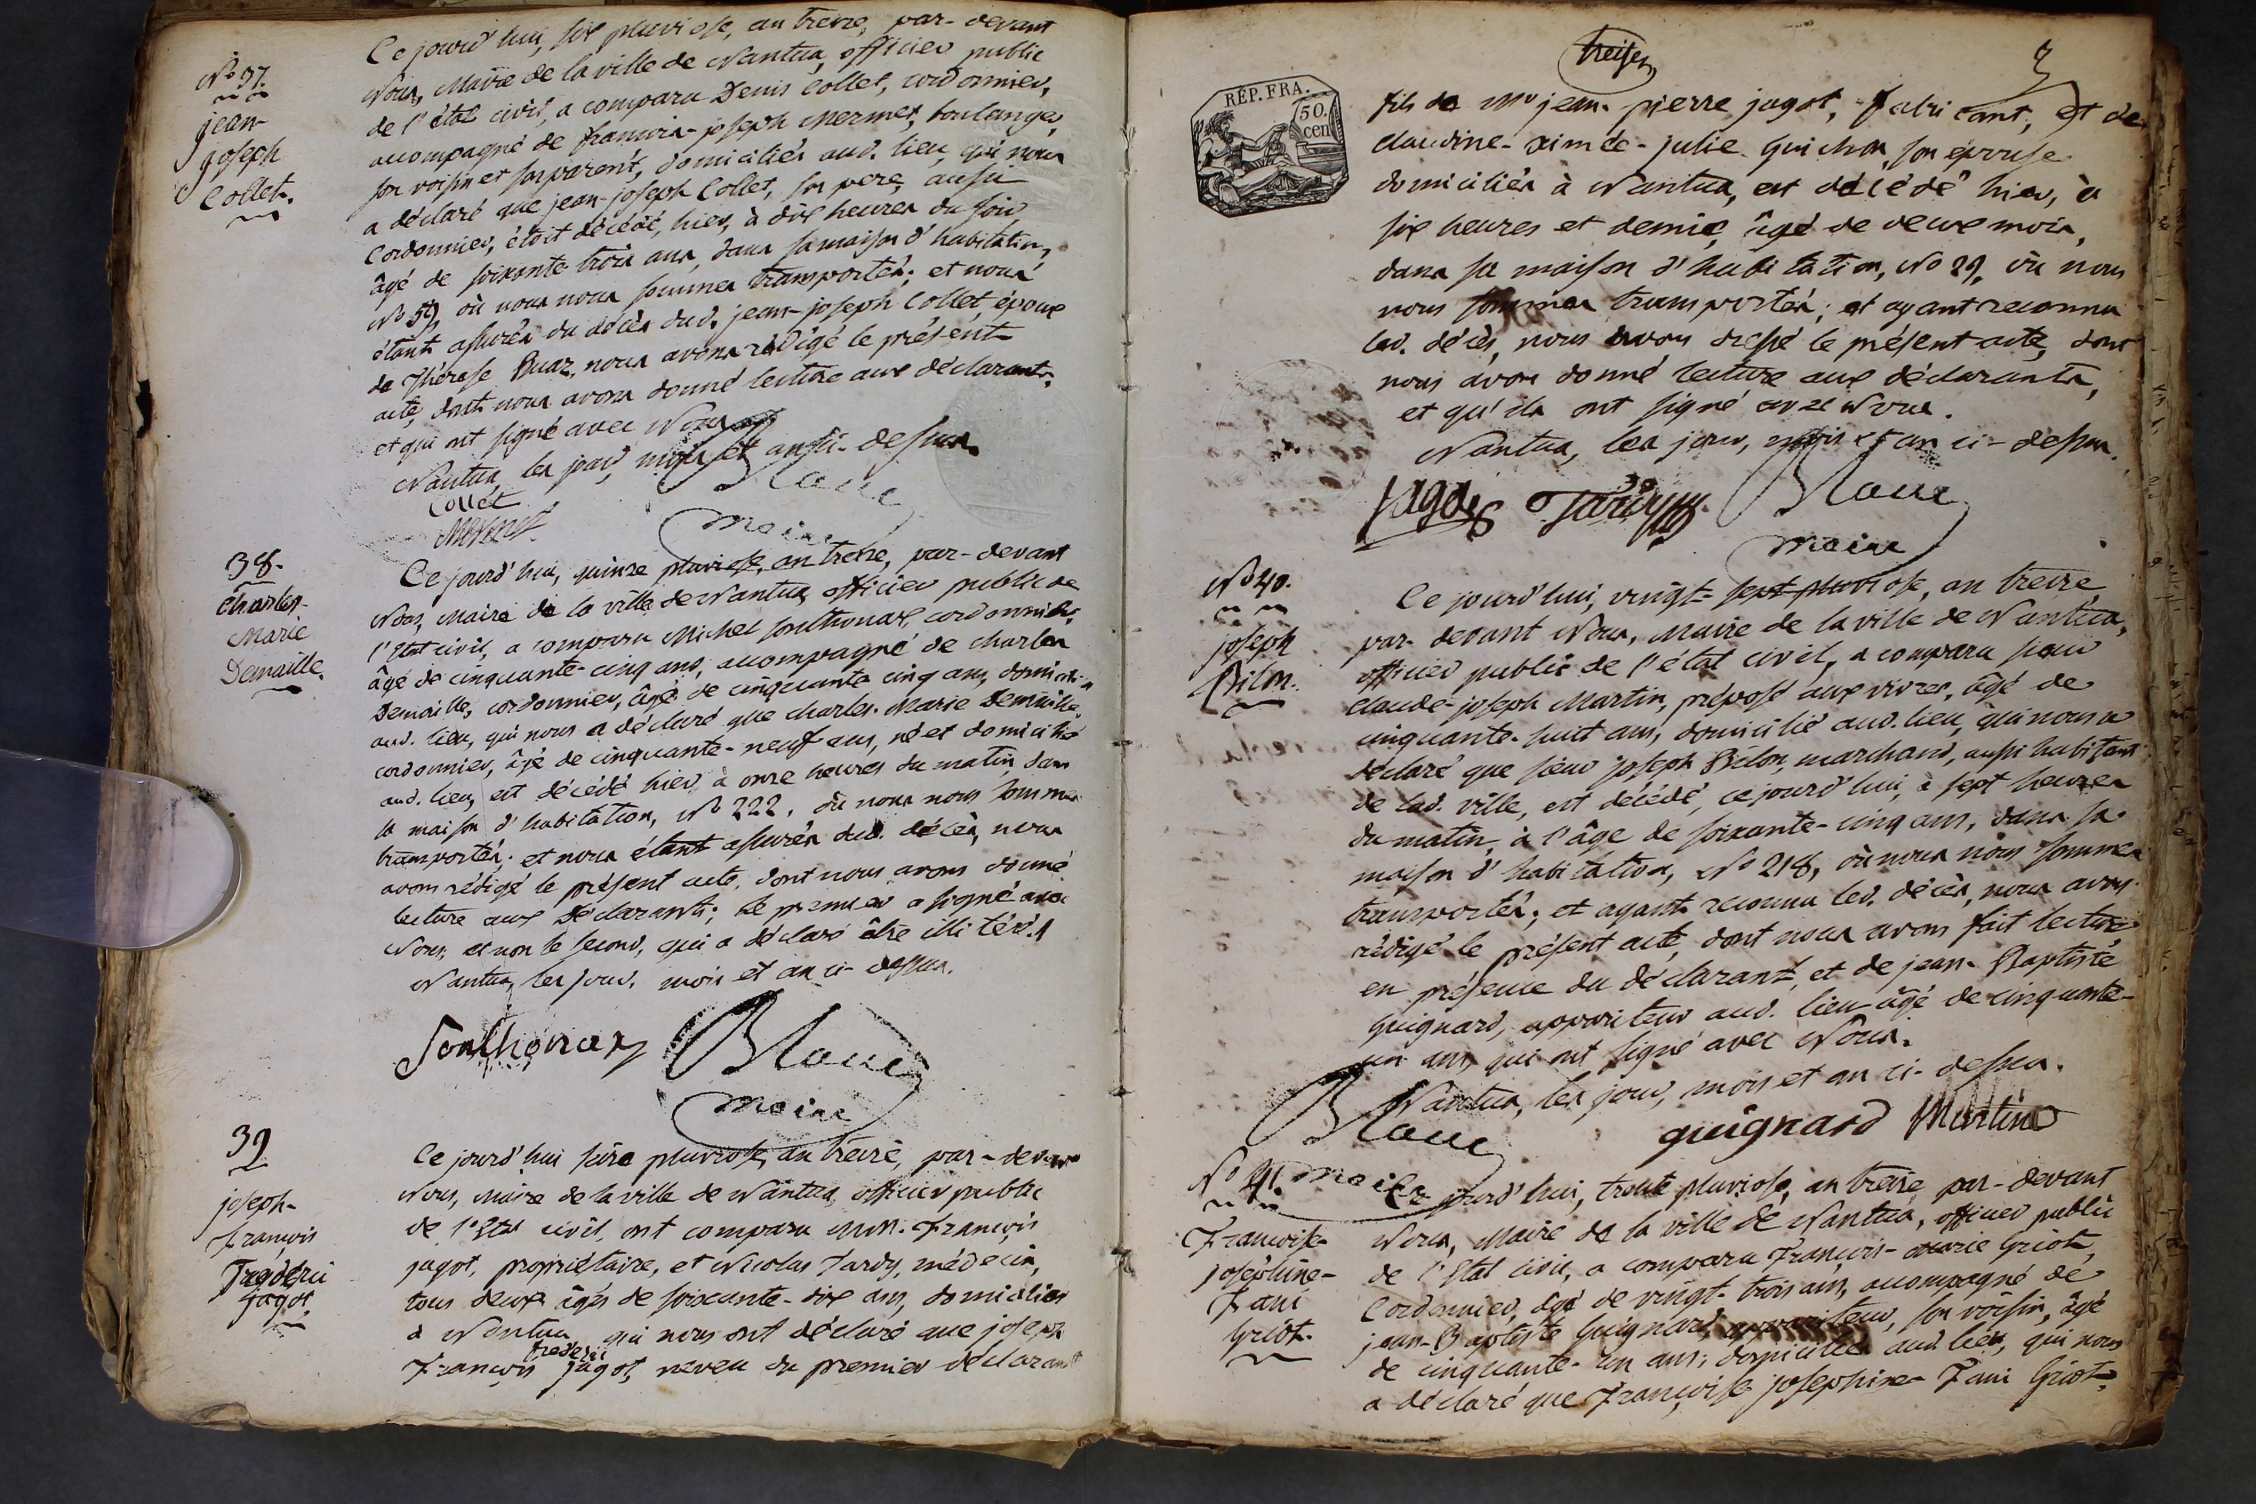 N.o 37.
jean-
joseph
Collet.
Ce jourd'hui, six pluviose, an treize, par-devant
Nous, Maire de la ville de Nantua, officier public
de l'état civil, a comparu Denis Collet, cordonnier,
accompagné de françois-joseph Mermet, boulanger,
son voisin et son parent, domiciliés aud. lieu, qui nous
a déclaré que jean-joseph Collet, son pere, aussi
Cordonnier, étoit décédé, hier, à dix heures du soir,
âgé de soixante-trois ans, dans sa maison d'habitation,
N.o 59, où nous nous sommes transportés; et nous
étant assurés du décès dud. jean-joseph Collet, époux
de Thérese Buaz, nous avons rédigé le présent
acte, dont nous avons donné lecture aux déclarants,
et qui ont signé avec Nous.
Nantua, les jour, mois et an ci-dessus.
Collet
Mermet
Blanc
maire
38.
Charles-
Marie
Demaille.
Ce jourd'hui, quinze pluviose, an treize, par-devant
Nous, Maire de la ville de Nantua, officier public de
l'Etat civil, a comparu Michel Sonthonax, cordonnier,
âgé de cinquante-cinq ans, accompagné de charles
Demaille, cordonnier, âgé de cinquante cinq ans, domiciliés
aud. lieu, qui nous a déclaré que charles-Marie Demaille,
cordonnier, âgé de cinquante-neuf ans, né et domicilié
aud. lieu, est décédé hier, à onze heures du matin, dans
sa maison d'habitation, N.o 222, où nous nous sommes
transportés; et nous étant assurés dud. décès, nous
avons rédigé le présent acte, dont nous avons donné
lecture aux Déclarants; le premier a signé avec
Nous, et non le second, qui a déclaré être illitéré.
Nantua, les jour, mois et an ci-dessus.
Sonthonax
Blanc
maire
39
joseph-
françois
Frédéric
jagot.
Ce jourd'hui seize pluviose, an treize, par-devant
Nous, Maire de la ville de Nantua, officier public
de l'Etat civil, ont comparu MM. françois
jagot, propriétaire, et Nicolas Tardy, médecin,
tous deux âgés de soixante-dix ans, domiciliés
à Nantua, qui nous ont déclaré que joseph
frederic
François jagot, neveu du premier déclarant
treizen
3
RÉP. FRA.
50.
cen
fils de Mr jean-pierre jagot, fabricant, et de
claudine-aimée-julie guichon, son épouse
domiciliés à Nantua, est décédé hier, à
six heures et demie, âgé de deux mois,
dans sa maison d'habitation, No 29, où nous
nous sommes transportés; et ayant reconnu
led. décès, nous avons dressé le présent acte, dont
nous avons donné lecture aux déclarants,
et qu'ils ont signé avec Nous.
Nantua, les jour, mois et an ci-dessus.
jagot
Tardy
Blanc
maire
No 40.
joseph
Bilon.
Ce jourd'hui, vingt-sept pluviose, an treize
par-devant Nous, Maire de la ville de Nantua,
officier public de l'état civil, a comparu sieur
claude-joseph Martin, préposé aux vivres, âgé de
cinquante-huit ans, domicilié aud. lieu, qui nous a
déclaré que sieur joseph Bilon, marchand, aussi habitant
de lad. ville, est décédé, ce jourd'hui, à sept heures
du matin, à l'âge de soixante-cinq ans, dans sa
maison d'habitation, No 218, où nous nous sommes
transportés; et ayant reconnu led. décès, nous avons
rédigé le présent acte, dont nous avons fait lecture
en présence du déclarant, et de jean-Baptiste
Guignard, appariteur aud. lieu âgé de cinquante-
un ans, qui ont signé avec Nous.
Nantua, les jour, mois et an ci-dessus.
Blanc
maire
guignard Martin
No 41.
Françoise-
joséphine-
Fani
Griot.
Ce jourd'hui, trente pluviose, an treize par-devant
Nous, Maire de la ville de Nantua, officier public
de l'Etat civil, a comparu François-Marie Griot,
Cordonnier, âgé de vingt-trois ans, accompagné de
jean-Baptiste Guignard, appariteur, son voisin, âgé
de cinquante-un ans, domiciliés aud. lieu, qui nous
a déclaré que Françoise josephine-Fani Griot,